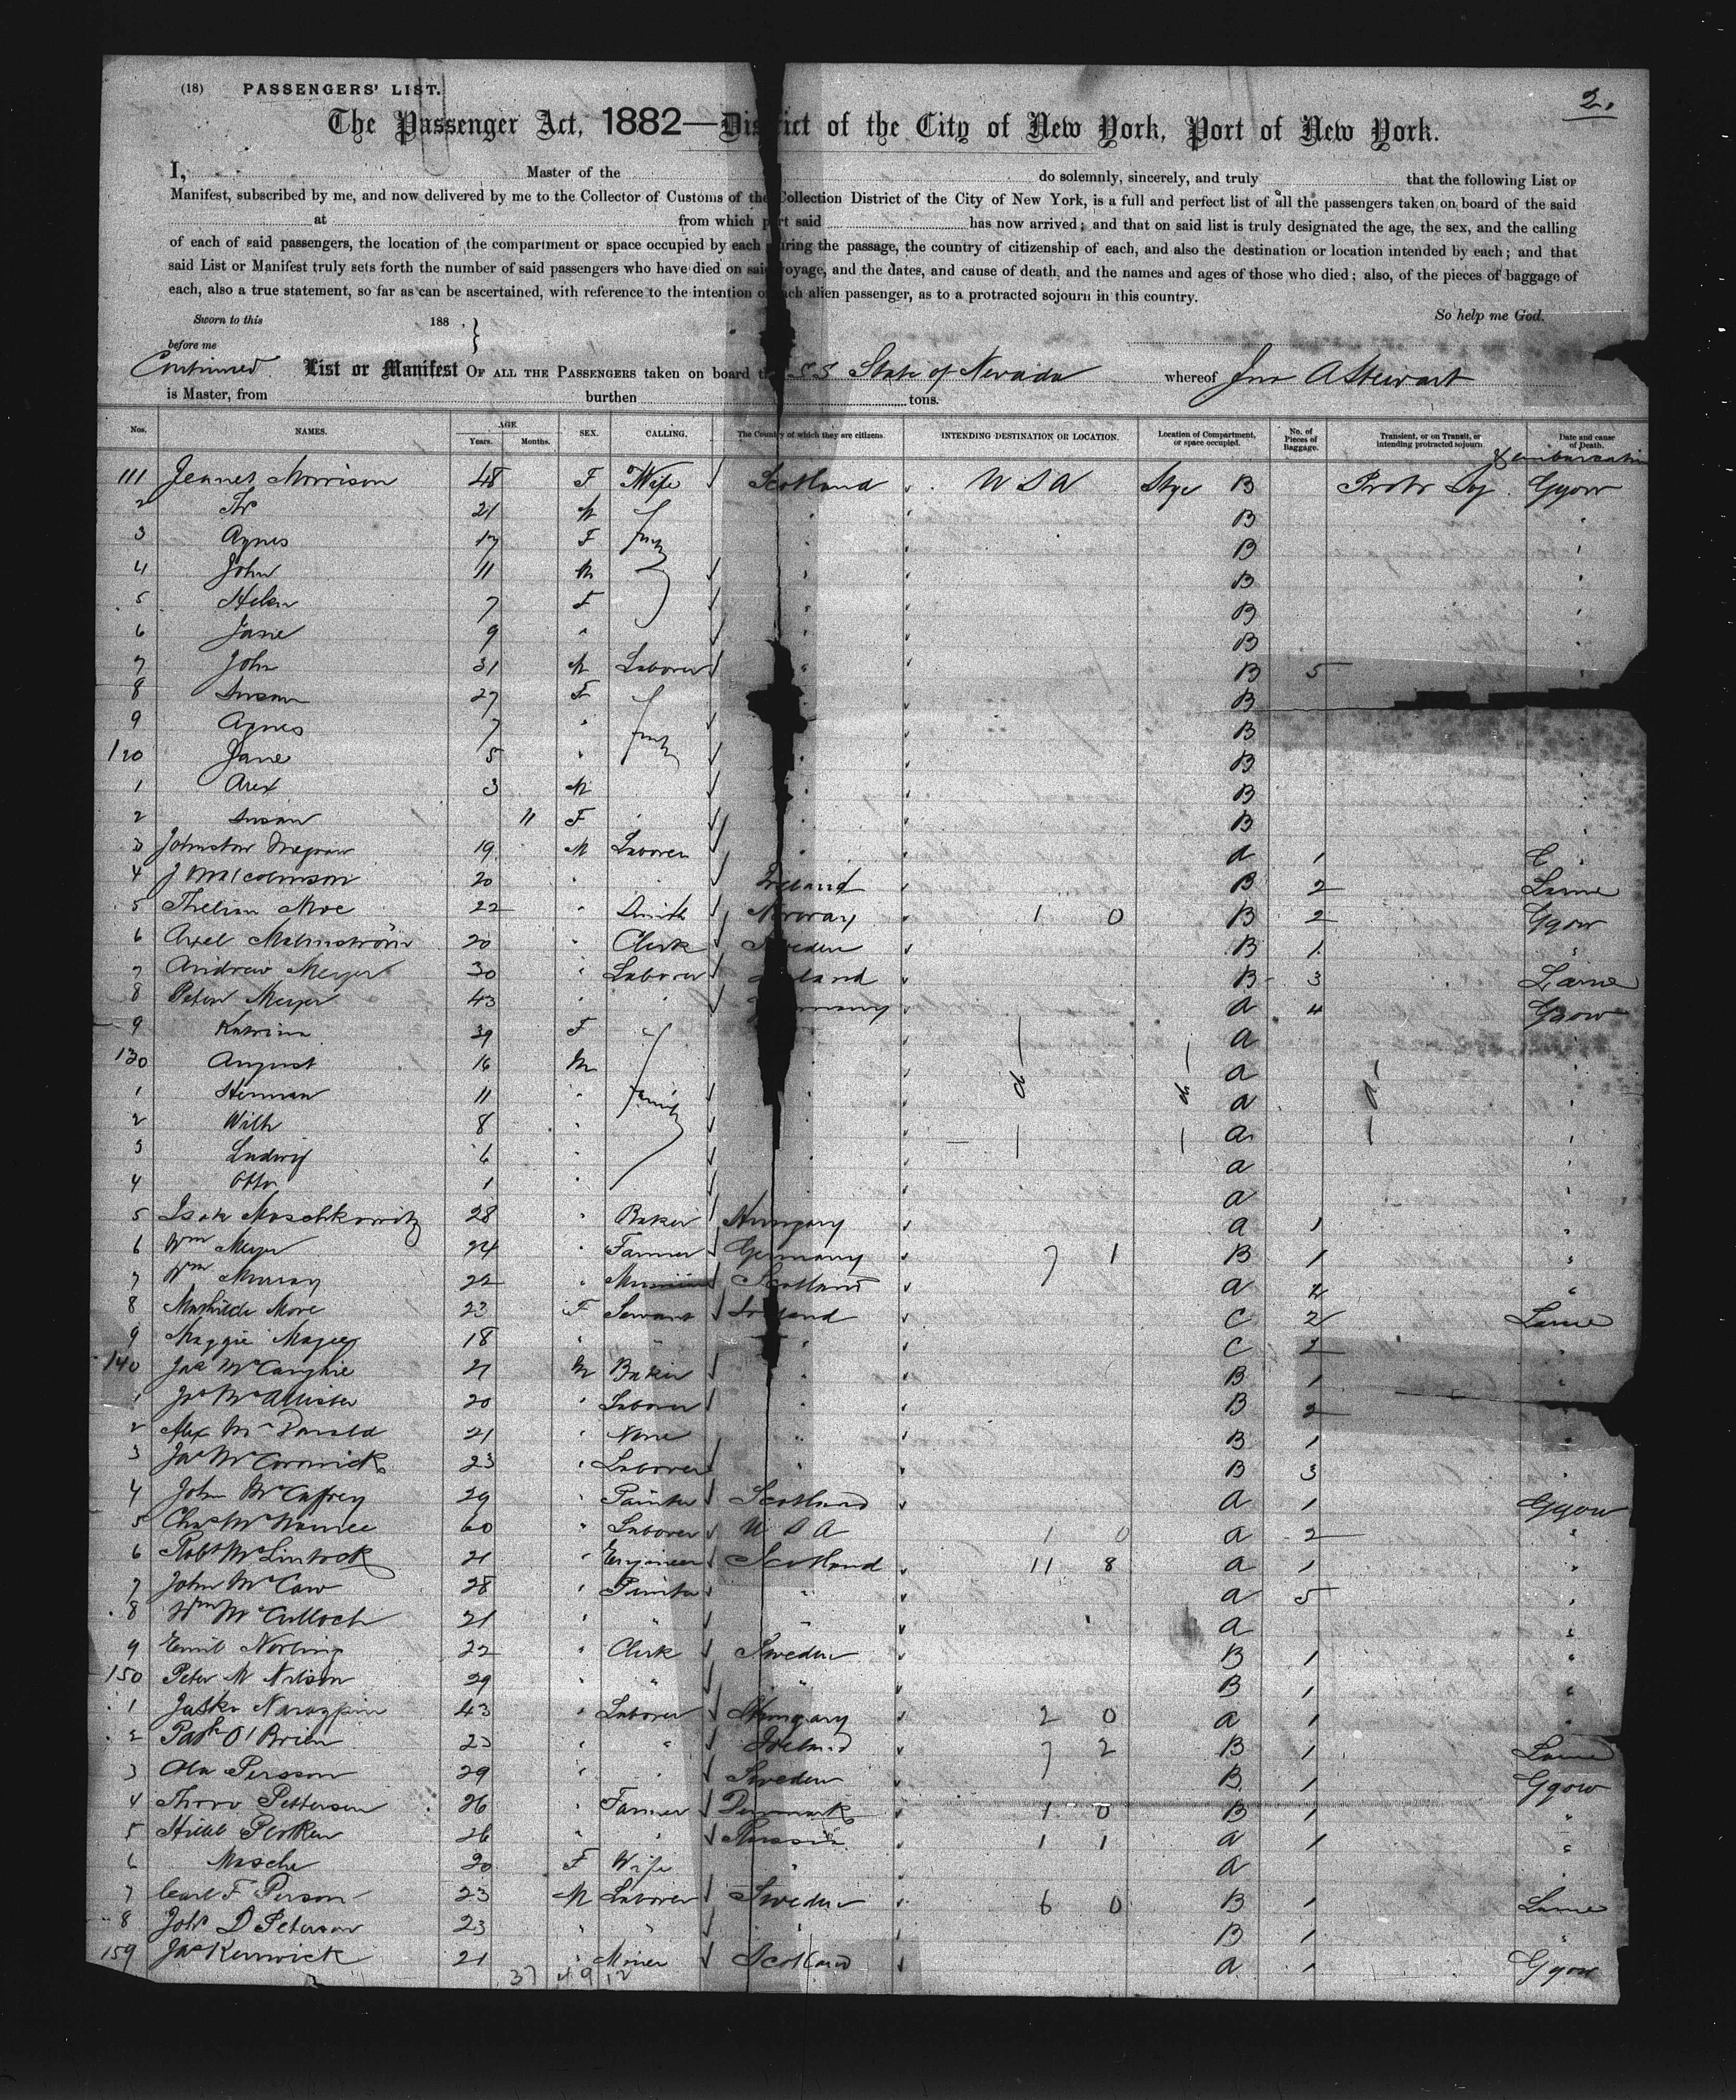 (18) PASSENGERS' LIST.
2.
The Passenger Act, 1882—District of the City of New York, Port of New York.
I, Master of the do solemnly, sincerely, and truly that the following List or
Manifest, subscribed by me, and now delivered by me to the Collector of Customs of the Collection District of the City of New York, is a full and perfect list of all the passengers taken on board of the said
at from which port said has now arrived; and that on said list is truly designated the age, the sex, and the calling
of each of said passengers, the location of the compartment or space occupied by each during the passage, the country of citizenship of each, and also the destination or location intended by each; and that
said List or Manifest truly sets forth the number of said passengers who have died on said voyage, and the dates, and cause of death, and the names and ages of those who died; also, of the pieces of baggage of
each, also a true statement, so far as can be ascertained, with reference to the intention of each alien passenger, as to a protracted sojourn in this country.
Sworn to this 188 . } So help me God.
before me
Continued List or Manifest OF ALL THE PASSENGERS taken on board the SS State of Nevada whereof Jno A Stewart
is Master, from burthen tons.
Nos. NAMES. AGE Years. Months. SEX. CALLING. The Country of which they are citizens. INTENDING DESTINATION OR LOCATION. Location of Compartment, or space occupied. No. of Pieces of Baggage. Transient, or on Transit, or intending protracted sojourn Date and cause of Death.
& embarcation
111 Jeanet Morrison 48 F Wife Scotland USA Stge B Protr Soj Ggow
2 21 M B
3 Agnes 17 F B
4 John 11 M B
5 Helen 7 F B
6 Jane 9 " B
7 John 31 M Laborer " B 5
8 Susan 27 F B
9 Agnes 7 " B
120 Jane 5 " B
1 Alex 3 M B
2 Susan 11 F B
3 Johnston 19 M Laborer a 1
4 J Malcolmson 20 " Ireland B 2 Larne
5 Moe 22 " Smith Norway 1 0 B 2 Ggow
6 Axel Malmström 20 " Clerk Sweden B 1 "
7 Andrew Meyer 30 " Laborer Ireland B 3 Larne
8 Peter Meyer 43 " " Germany a 4 Ggow
9 Katrina 39 F a
130 August 16 M a
1 Herman 11 " family a
2 Wilh 8 " a
3 Ludwig 6 " a
4 Otto 1 " a
5 Isak Moschkowitz 28 " Baker Hungary a 1
6 Wm Meyer 24 " Farmer Germany 7 1 B 1 "
7 Wm Murray 22 " Scotland a 4 "
8 Mathilde More 23 F Servant Ireland C 2 Larne
9 Maggie Magee 18 " " C 2 "
140 Jas McCarghie 21 M Baker " B 1 "
1 Jas McAllister 20 " Laborer " B 2
2 Alex McDonald 21 " None " B 1 "
3 Jas McCormick 23 " Laborer " B 3 "
4 John McCaffrey 29 " Painter Scotland a 1 Ggow
5 Chas McNamee 60 " Laborer USA 1 0 a 2 "
6 Robt McLintock 21 " Engineer Scotland 11 8 a 1 "
7 John McCaw 28 " " a 5 "
8 Wm McCulloch 21 " " " a "
9 Emil Norling 22 " Clerk Sweden B 1 "
150 Peter M Nilson 29 " " " B 1 "
1 43 " Laborer Hungary 2 0 a 1 "
2 Patk O'Brien 23 " " Ireland 7 2 B 1 Larne
3 Ola Persson 29 " " Sweden B 1 Ggow
4 Thoro Pettersen 26 " Farmer Denmark 1 0 B 1 "
5 26 " " Russia 1 1 a 1 "
6 Masche 20 F Wife " a
7 Carl F Person 23 M Laborer Sweden 6 0 B 1 Larne
8 Johs D Peterson 23 " " " B 1 "
159 Jas Kenwick 21 " Miner Scotland a 1 Ggow
37 49 12